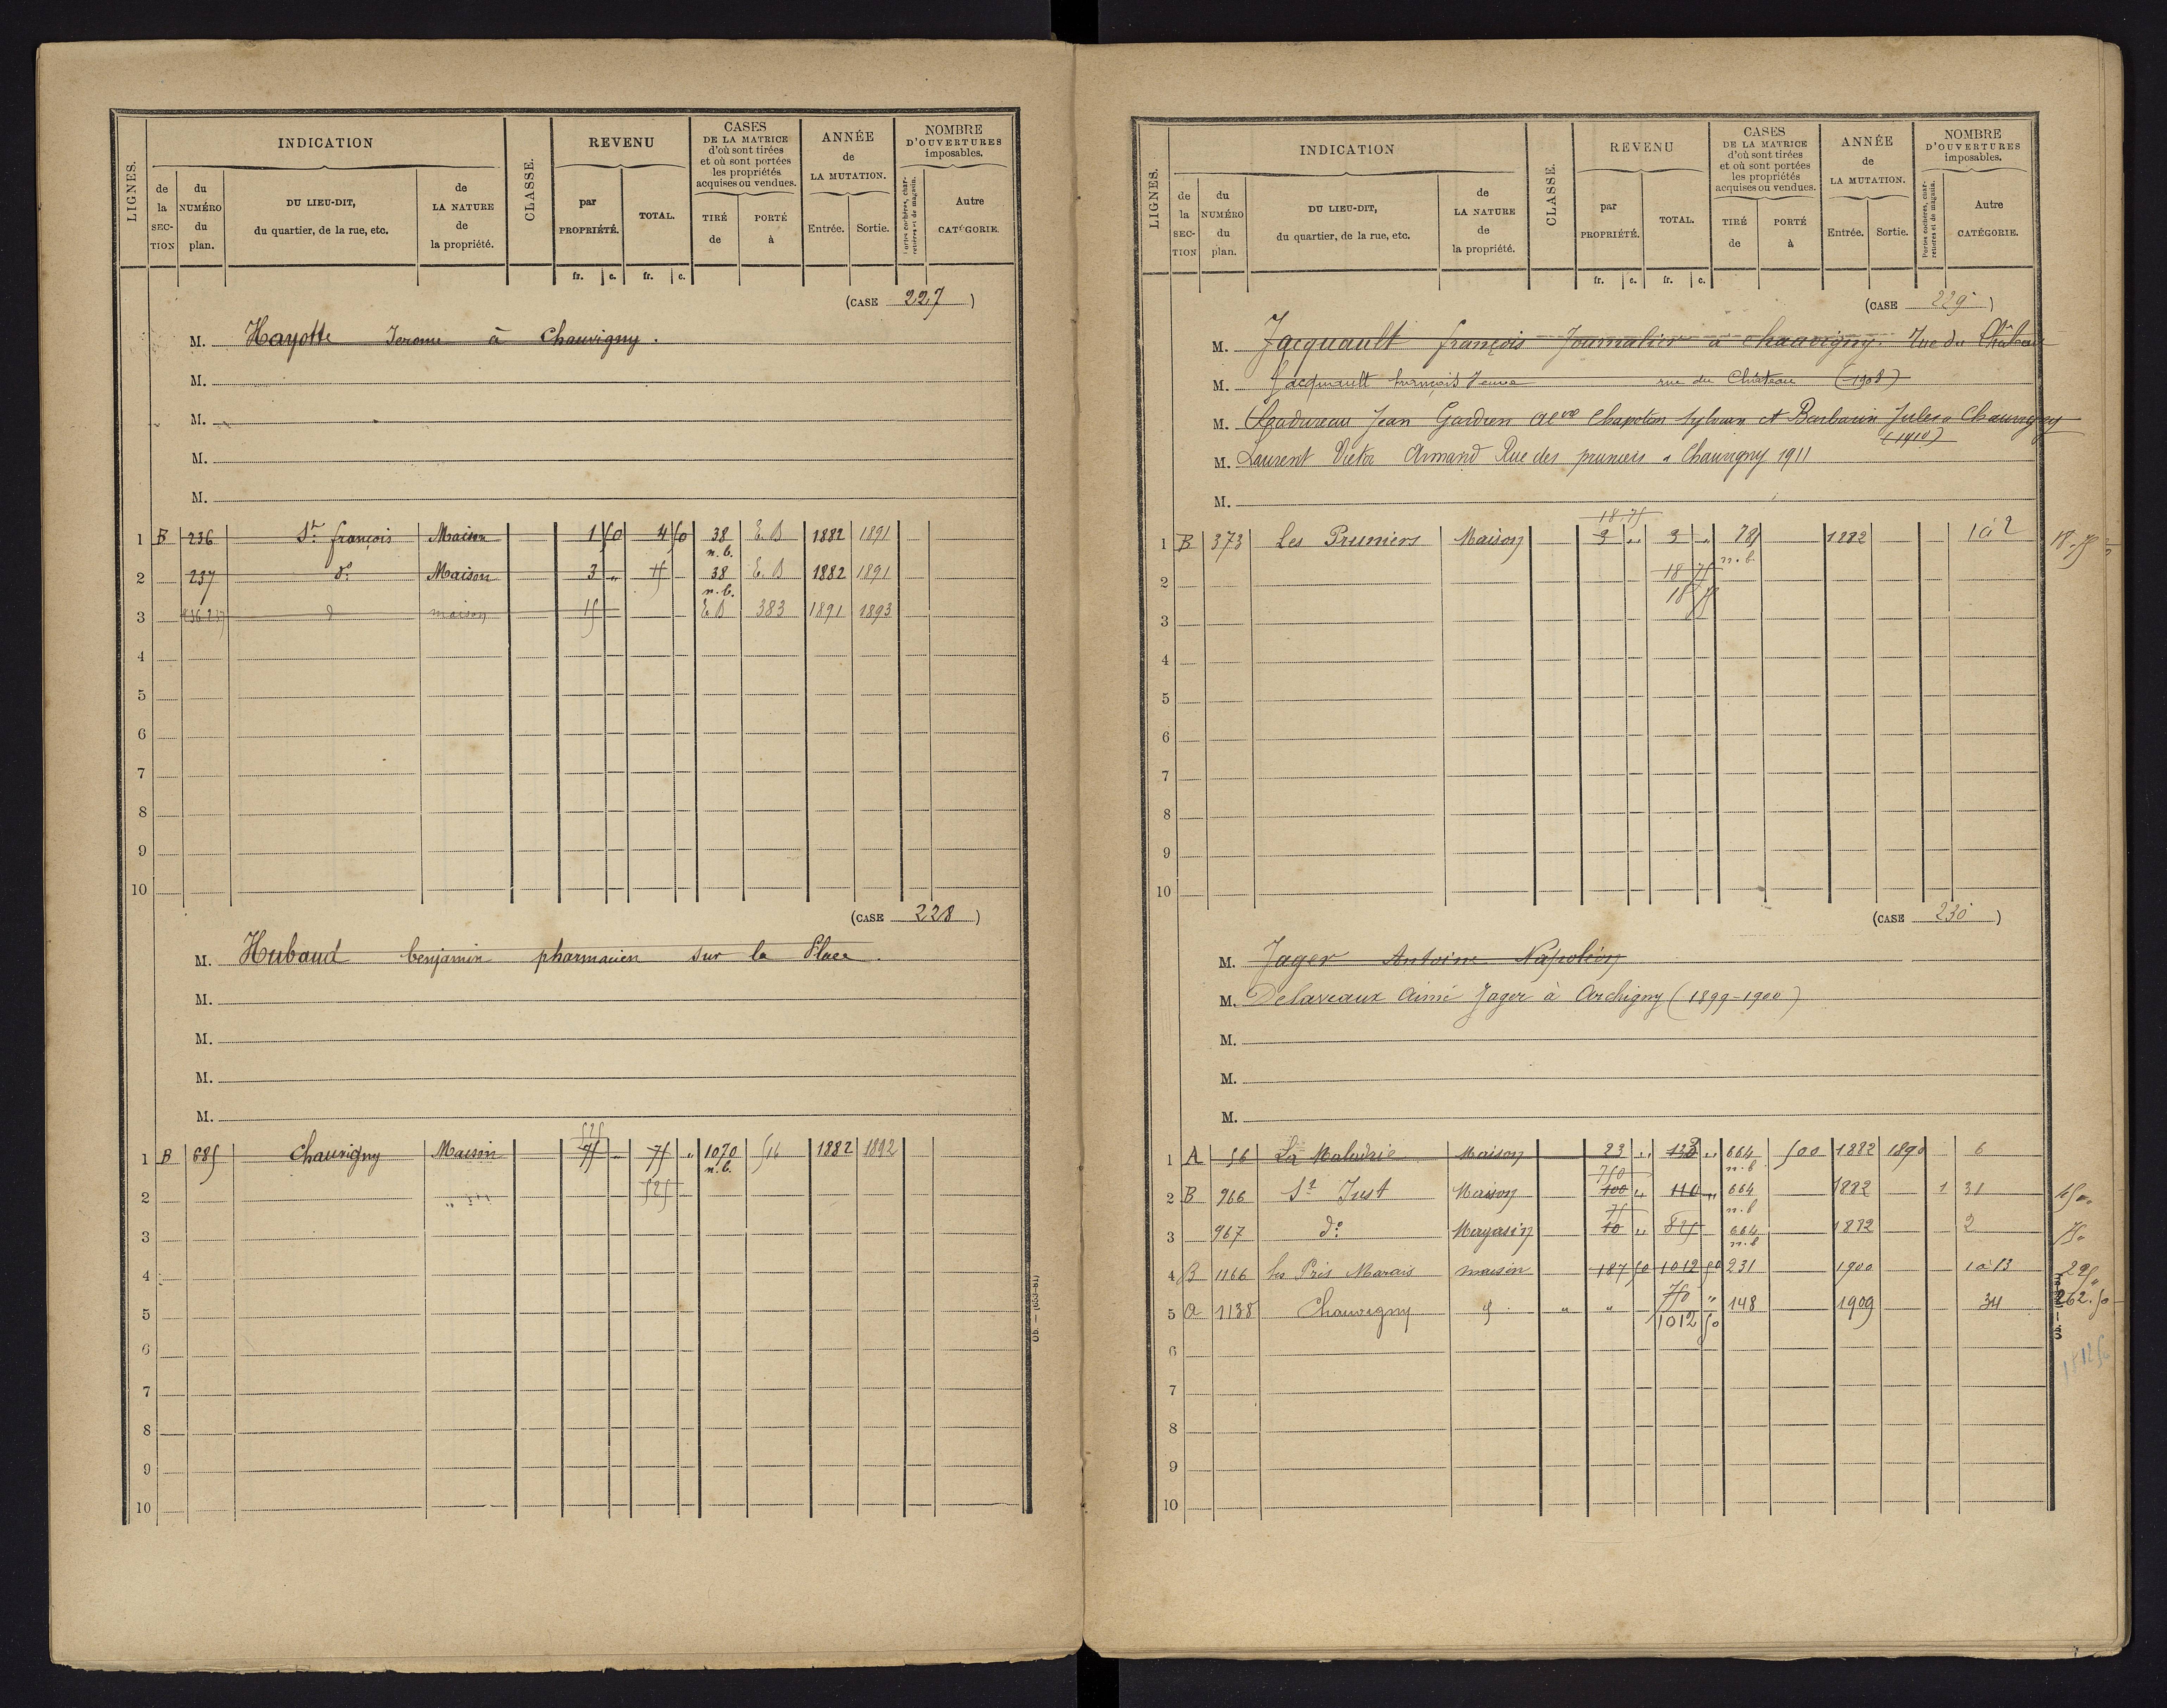 LIGNES.
INDICATION
de la SECTION
du NUMÉRO du plan.
DU LIEU-DIT, du quartier, de la rue, etc.
de LA NATURE de la propriété.
CLASSE.
REVENU
par PROPRIÉTÉ.
TOTAL.
CASES DE LA MATRICE d'où sont tirées et où sont portées les propriétés acquises ou vendues.
TIRÉ de
PORTÉ à
ANNÉE de LA MUTATION.
Entrée. Sortie.
NOMBRE D'OUVERTURES imposables.
Portes cochères, charretières et de magasin.
Autre CATÉGORIE.
fr. c. fr. c.
(CASE 227)
M. Hayotte Jerome à Chauvigny.
M.
M.
M.
M.
1 B 236 St. françois Maison 1 50 4 50 38 n.b. E.B 1882 1891
2 237 do. Maison 3 „ 15 38 n.b. E.B 1882 1891
3 236 237 d maison 15 E B 383 1891 1893
4
5
6
7
8
9
10
(CASE 228)
M. Hubaud benjamin pharmacien sur la Place.
M.
M.
M.
M.
525
1 B 685 Chauvigny Maison 75 „ 75 „ 1070 n.b. 516 1882 1892
2 525
3
4
5
6
7
8
9
10
LIGNES.
INDICATION
de la SECTION
du NUMÉRO du plan.
DU LIEU-DIT, du quartier, de la rue, etc.
de LA NATURE de la propriété.
CLASSE.
REVENU
par PROPRIÉTÉ.
TOTAL.
CASES DE LA MATRICE d'où sont tirées et où sont portées les propriétés acquises ou vendues.
TIRÉ de
PORTÉ à
ANNÉE de LA MUTATION.
Entrée. Sortie.
NOMBRE D'OUVERTURES imposables.
Portes cochères, charretières et de magasin.
Autre CATÉGORIE.
fr. c. fr. c.
(CASE 229)
M. Jacquault françois Journalier à chauvigny. Rue du Château
M. Jacquault françois Veuve rue du Château (1908)
M. Jean Gardien Chapoton Sylvain et Barbarin Jules à Chauvigny
(1910)
M. Laurent Victor Armand Rue des pruniers à Chauvigny 1911
M.
18.75
1 B 373 Les Pruniers Maison 3 „ 3 „ n.b. 1882 1 à 2
2 18 75
18 75
3
4
5
6
7
8
9
10
(CASE 230)
M. Jager Antoine Napoléon
M. Delaveaux Aimé Jager à Archigny (1899-1900)
M.
M.
M.
1 A 56 La Maladrie Maison 23 „ 133 „ 664 n.b 500 1882 1890 6
750
2 B 966 St Just Maison 100 „ 110 „ 664 n.b 1882 1 31
75
3 967 do. Magasin 10 „ 825 664 n.b 1882 2
4 B 1166 les Prés Marais maison 187 50 1012 50 231 1900 1 à 13
5 A 1138 Chauvigny d. „ „ 750 „ 148 1909 34 262.50
1012 50
6
7
8
9
10